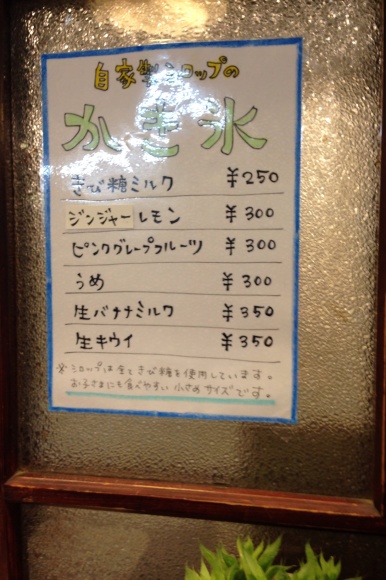 自家製シロップの
かき氷
きび糖ミルク ¥250
ジンジャーレモン ¥300
ピンクグレープフルーツ ¥300
うめ ¥300
生バナナミルク ¥350
生キウイ ¥350
※シロップは全てきび糖を使用しています。
お子さまにも食べやすい小さめサイズです。